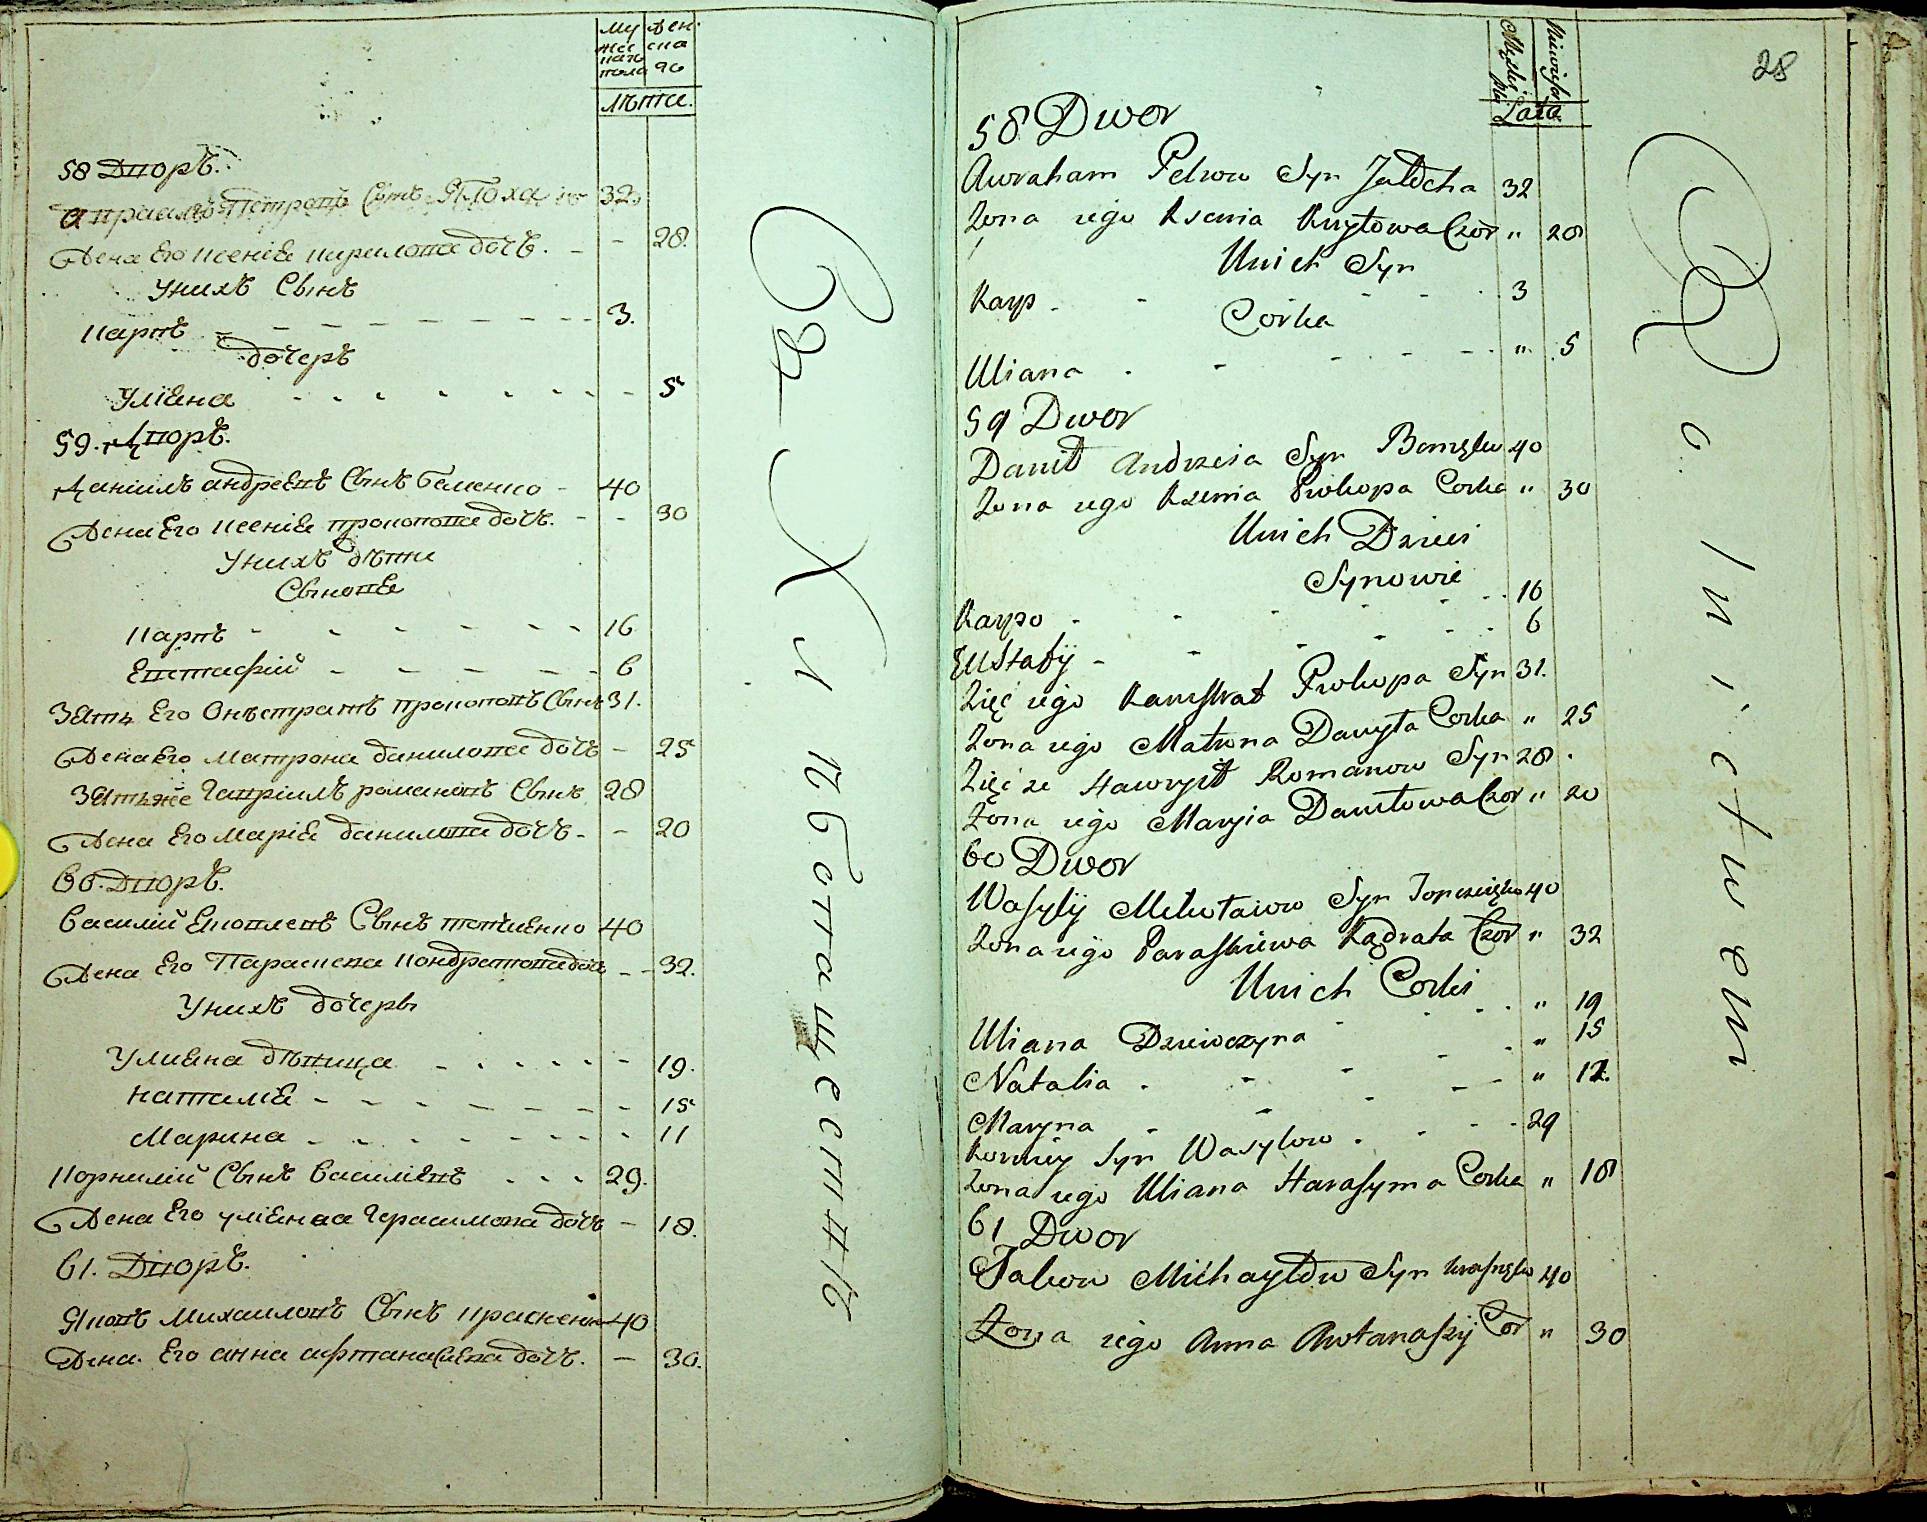 Му Жен
жес ска
каго
пола го
Лѣта.
58 Дворъ.
Авраамъ Петровъ Сынъ 32
Жена Его Ксенія Кирилова дочь. - - 28.
Унихъ Сынъ
Карпъ - - - - - - - - 3.
дочерь
Уліяна - - - - - - - - 5
59. Дворъ.
Даніилъ андреевъ Сынъ Боменко - 40
Жена Его Ксенія прокопова дочь. - - 30
Унихъ дѣти
Сыновя
Карпъ - - - - - - - 16
Евстафій - - - - - 6
Зять Его прокоповъ Сынъ 31.
Жена Его Матрона данилова дочь - 25
Зятьже Гавріилъ романовъ Сынъ 28
Жена Его Марія данилова дочь - - 20
60. Дворъ.
Василій Сынъ 40
Жена Его Параскева Кондратова доч - - 32.
Унихъ дочеры
Улияна дѣвица - - - - - - 19.
Наталія - - - - - - - - 15
Марина - - - - - - - - 11
Корнилій Сынъ Василіевъ - - - 29.
Жена Его уліянаа Герасимова дочь - 18.
61. Дворъ.
Яковъ Михаиловъ Сынъ 40
Жена. Его анна афтанасиева дочь. - 30.
Съ Хл ѣбопаществом
28
Męskiey płci
Niewieściey
Lata
58 Dwor
Awraham Petrow Syn 32
Zona iego Ksenia Kryłowa Cor " 28
Unich Syn
Karp - - - - - 3
Corka
Uliana - - - - - " 5
59 Dwor
Danił Andrzeia Syn 40
Zona iego Ksenia Prokopa Corka " 30
Unich Dzieci
Synowie
Karpo - - - - - 16
Eustafij - - - - - 6
Zięć iego Prokopa Syn 31.
Zona iego Matrona Danyła Corka " 25
Zięć ze Hawrył Romanow Syn 28.
Zona iego Maryia Daniłowa Cor " 20
60 Dwor
Wasylij Syn 40
Zona iego Paraskiewa Kądrata Cor " 32
Unich Corki
Uliana Dziewczyna - - - " 19
Natalia - - - - - " 15
Maryna - - - - - " 12.
Korniey Syn Wasylow - - - 29
Zona iego Uliana Harasyma Corka " 18
61 Dwor
Jakow Michayłow Syn 40
Zona iego Anna Awtanasij Cor " 30